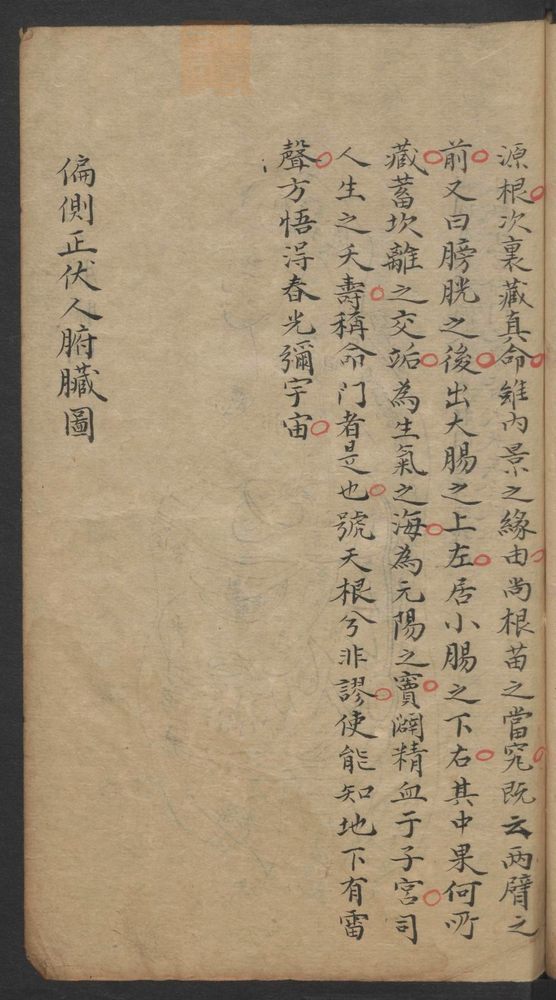 源根次裏藏真命雖内景之緣由尚根苗之當究既云兩臂之
前又曰膀胱之後出大腸之上左居小腸之下右其中果何所
藏蓄坎離之交姤為生氣之海為元陽之竇闢精血于子宮司
人生之夭壽稱命门者是也號天根兮非謬使能知地下有雷
聲方悟淂春光彌宇宙
偏側正伏人腑臟圖